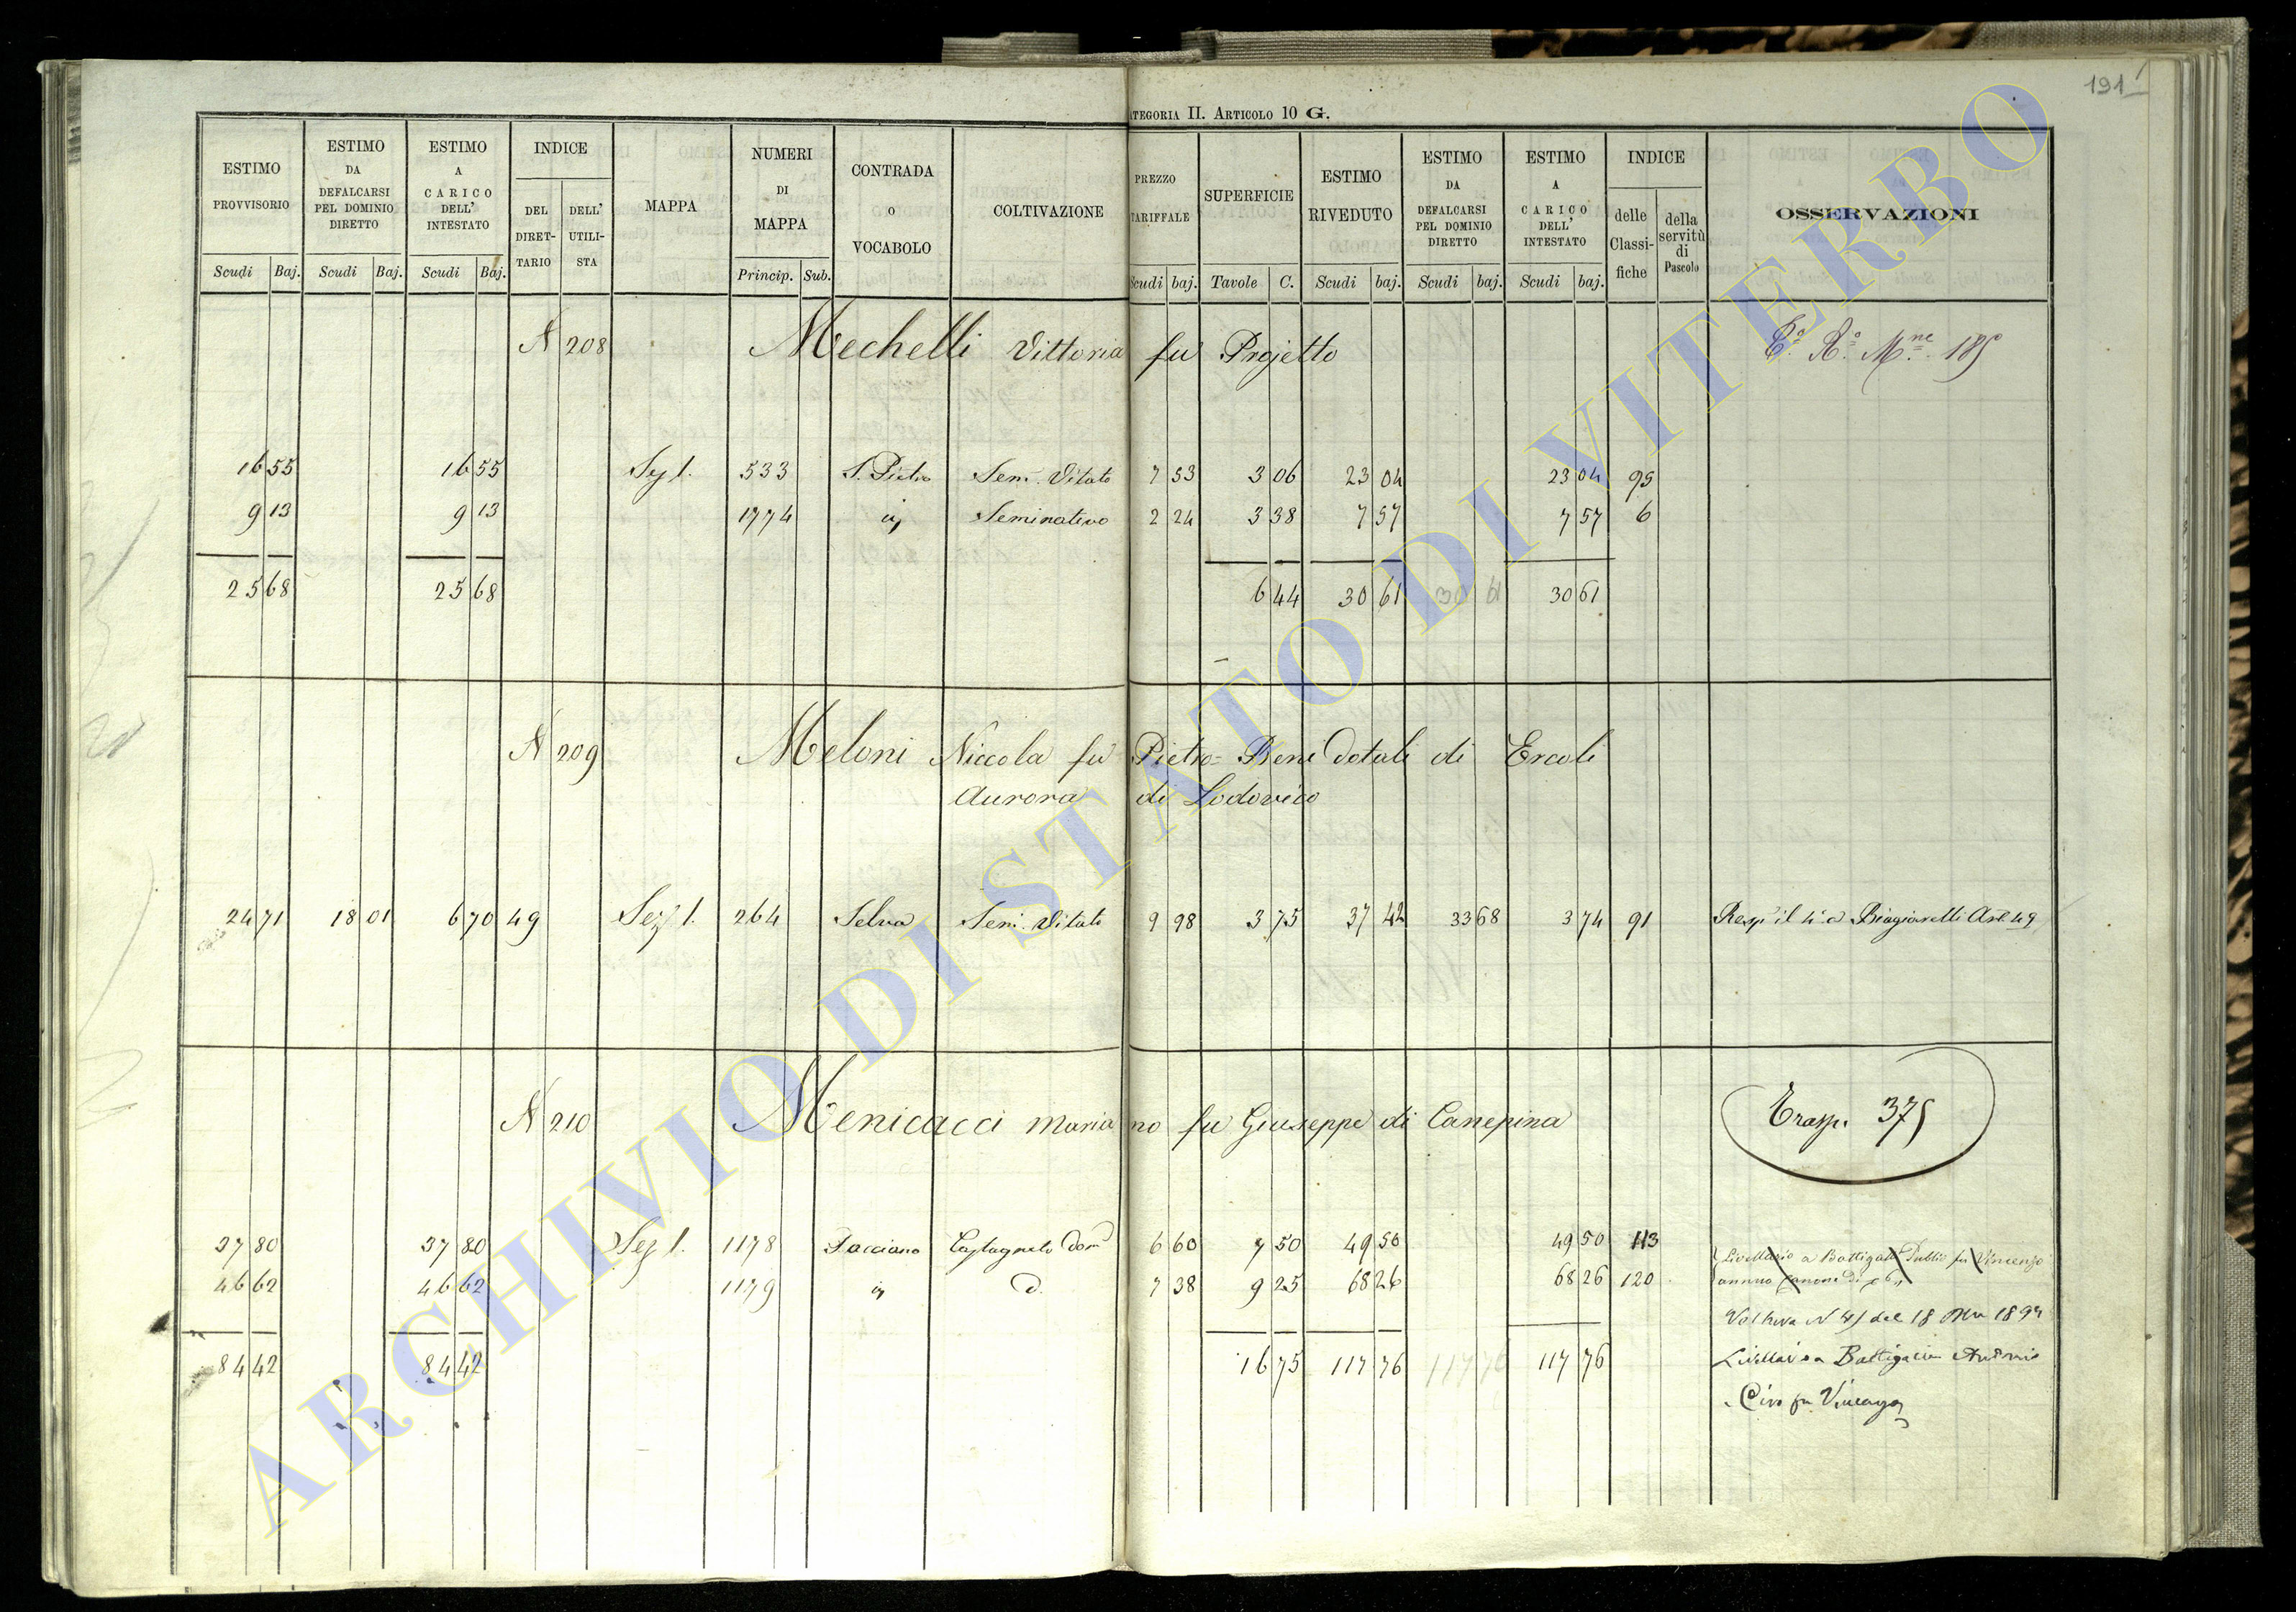 191
ATEGORIA II. ARTICOLO 10 G.
ESTIMO PROVVISORIO Scudi Baj.
ESTIMO DA DEFALCARSI PEL DOMINIO DIRETTO Scudi Baj.
ESTIMO A CARICO DELL' INTESTATO Scudi Baj.
INDICE DEL DIRET-TARIO DELL' UTILI-STA
MAPPA
NUMERI DI MAPPA Princip. Sub.
CONTRADA o VOCABOLO
COLTIVAZIONE
PREZZO TARIFFALE Scudi baj.
SUPERFICIE Tavole C.
ESTIMO RIVEDUTO Scudi baj.
ESTIMO DA DEFALCARSI PEL DOMINIO DIRETTO Scudi baj.
ESTIMO A CARICO DELL' INTESTATO Scudi baj.
INDICE delle Classi-fiche della servitù di Pascolo
OSSERVAZIONI
N 208 Mechelli Vittoria fu Projetto
16 55 16 55 Sez 1. 533 S. Pietro Sem. Vitato 7 53 3 06 23 04 23 04 95
9 13 9 13 1774 Seminativo 2 24 3 38 7 57 7 57 6
25 68 25 68 6 44 30 61 30 61 30 61
N 209 Meloni Niccola fu Pietro= Beni Dotali di Ercoli
Aurora di Lodovico
24 71 18 01 6 70 49 Sez 1. 264 Selva Sem. Vitato 9 98 3 75 37 42 33 68 3 74 91 Resp. il 4° a Biagiarelli Art 49
N 210 Menicacci Mariano fu Giuseppe di Canepina
Trasp. 375
37 80 37 80 Sez 1. 1178 Facciano Castagneto Dom 6 60 7 50 49 50 49 50 113 Livellario a Battigalli Publio fu Vincenzo
46 62 46 62 1179 d. 7 38 9 25 68 26 68 26 120 annuo canone di
Voltura N del 18 1894
84 42 84 42 16 75 117 76 117 76 117 76 Antonio
Ciro fu Vincenzo
ARCHIVIO DI STATO DI VITERBO